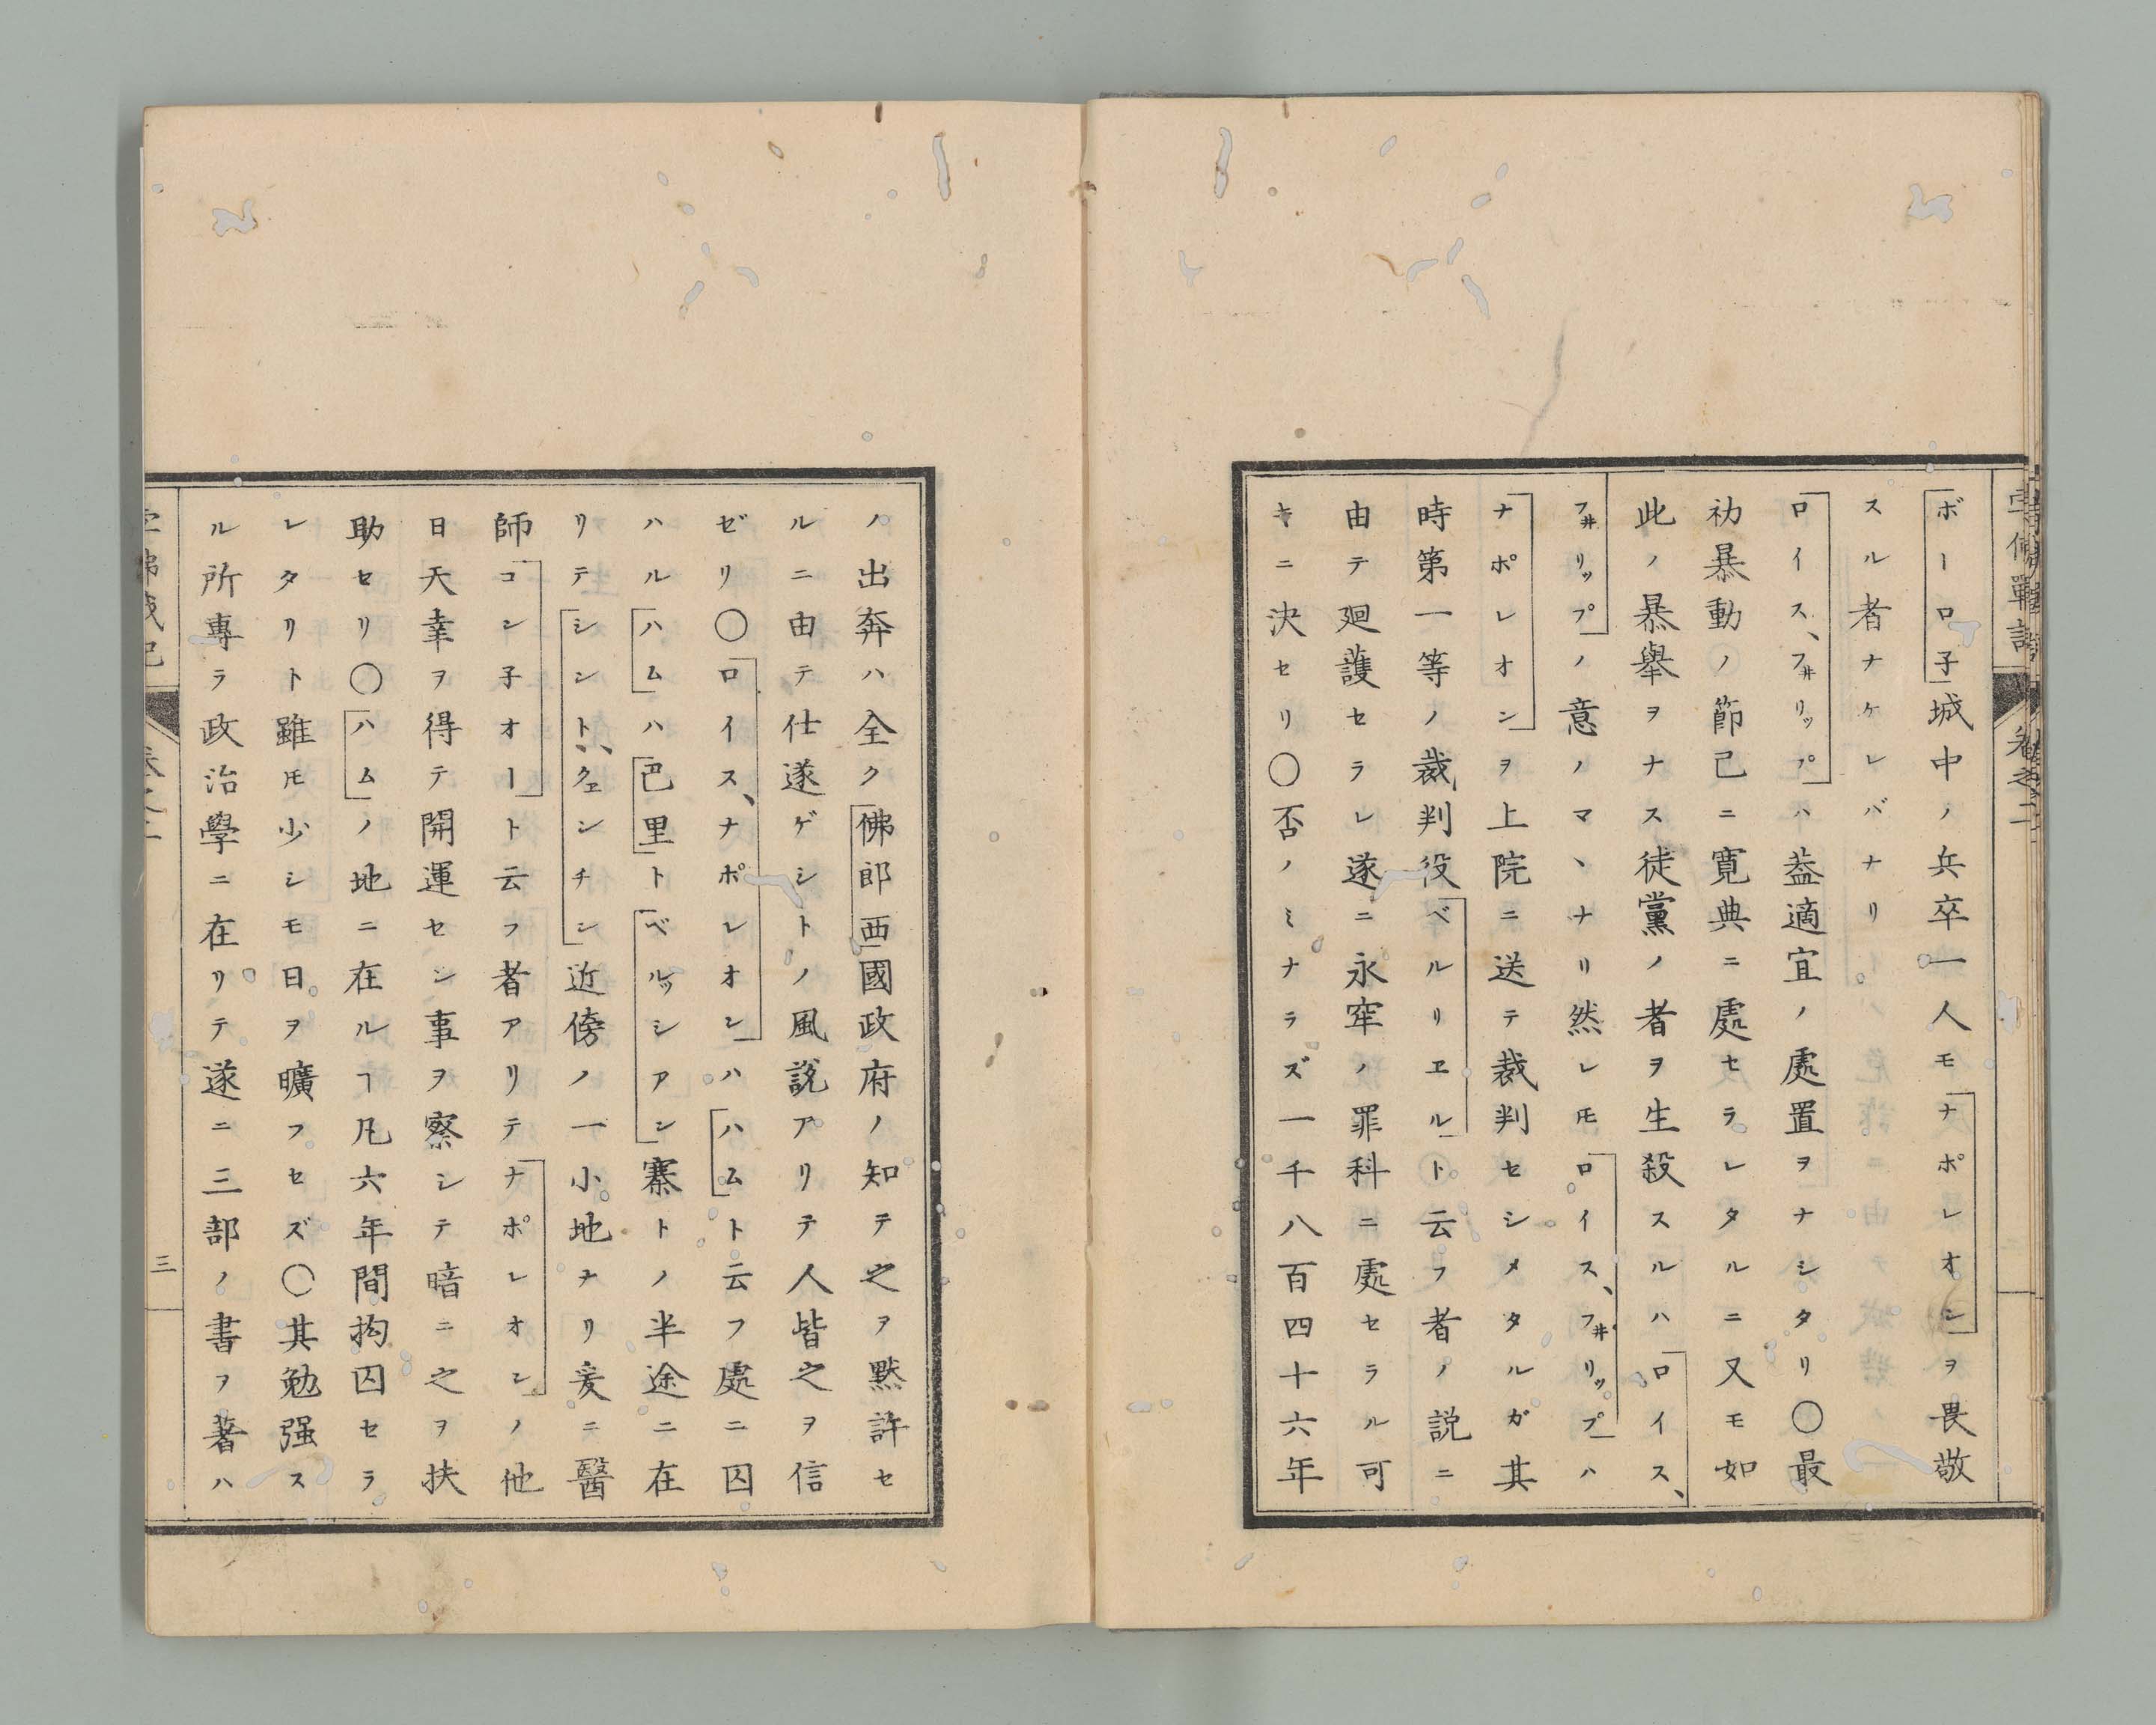 ボーロ子城中ノ兵卒一人モナポレオンヲ畏敬
スル者ナケレバナリ
ロイス、フ井リップハ葢適宜ノ處置ヲナシタリ〇最
初暴動ノ節已ニ寛典ニ處セラレタルニ又モ如
此ノ暴舉ヲナス徒黨ノ者ヲ生殺スルハロイス、
フ井リップノ意ノマヽナリ然レ𪜈ロイス、フ井リップハ
ナポレオンヲ上院ニ送テ裁判セシメタルガ其
時第一等ノ裁判役ベルリエルト云フ者ノ説ニ
由テ廻護セラレ遂ニ永窂ノ罪科ニ處セラル可
キニ決セリ〇否ノミナラズ一千八百四十六年
ノ出奔ハ全ク佛郎西國政府ノ知テ之ヲ黙許セ
ルニ由テ仕遂ゲシトノ風説アリテ人皆之ヲ信
ゼリ〇ロイス、ナポレオンハハムト云フ處ニ囚
ハルハムハ巴里トベルッシアン寨トノ半途ニ在
リテシント、クェンチン近傍ノ一小地ナリ爰ニ醫
師コン子オート云フ者アリテナポレオンノ他
日天幸ヲ得テ開運セン事ヲ察シテ暗ニ之ヲ扶
助セリ〇ハムノ地ニ在ルヿ凡六年間拘囚セラ
レタリト雖𪜈少シモ日ヲ曠フセズ〇其勉强ス
ル所專ラ政治學ニ在リテ遂ニ三部ノ書ヲ著ハ
三